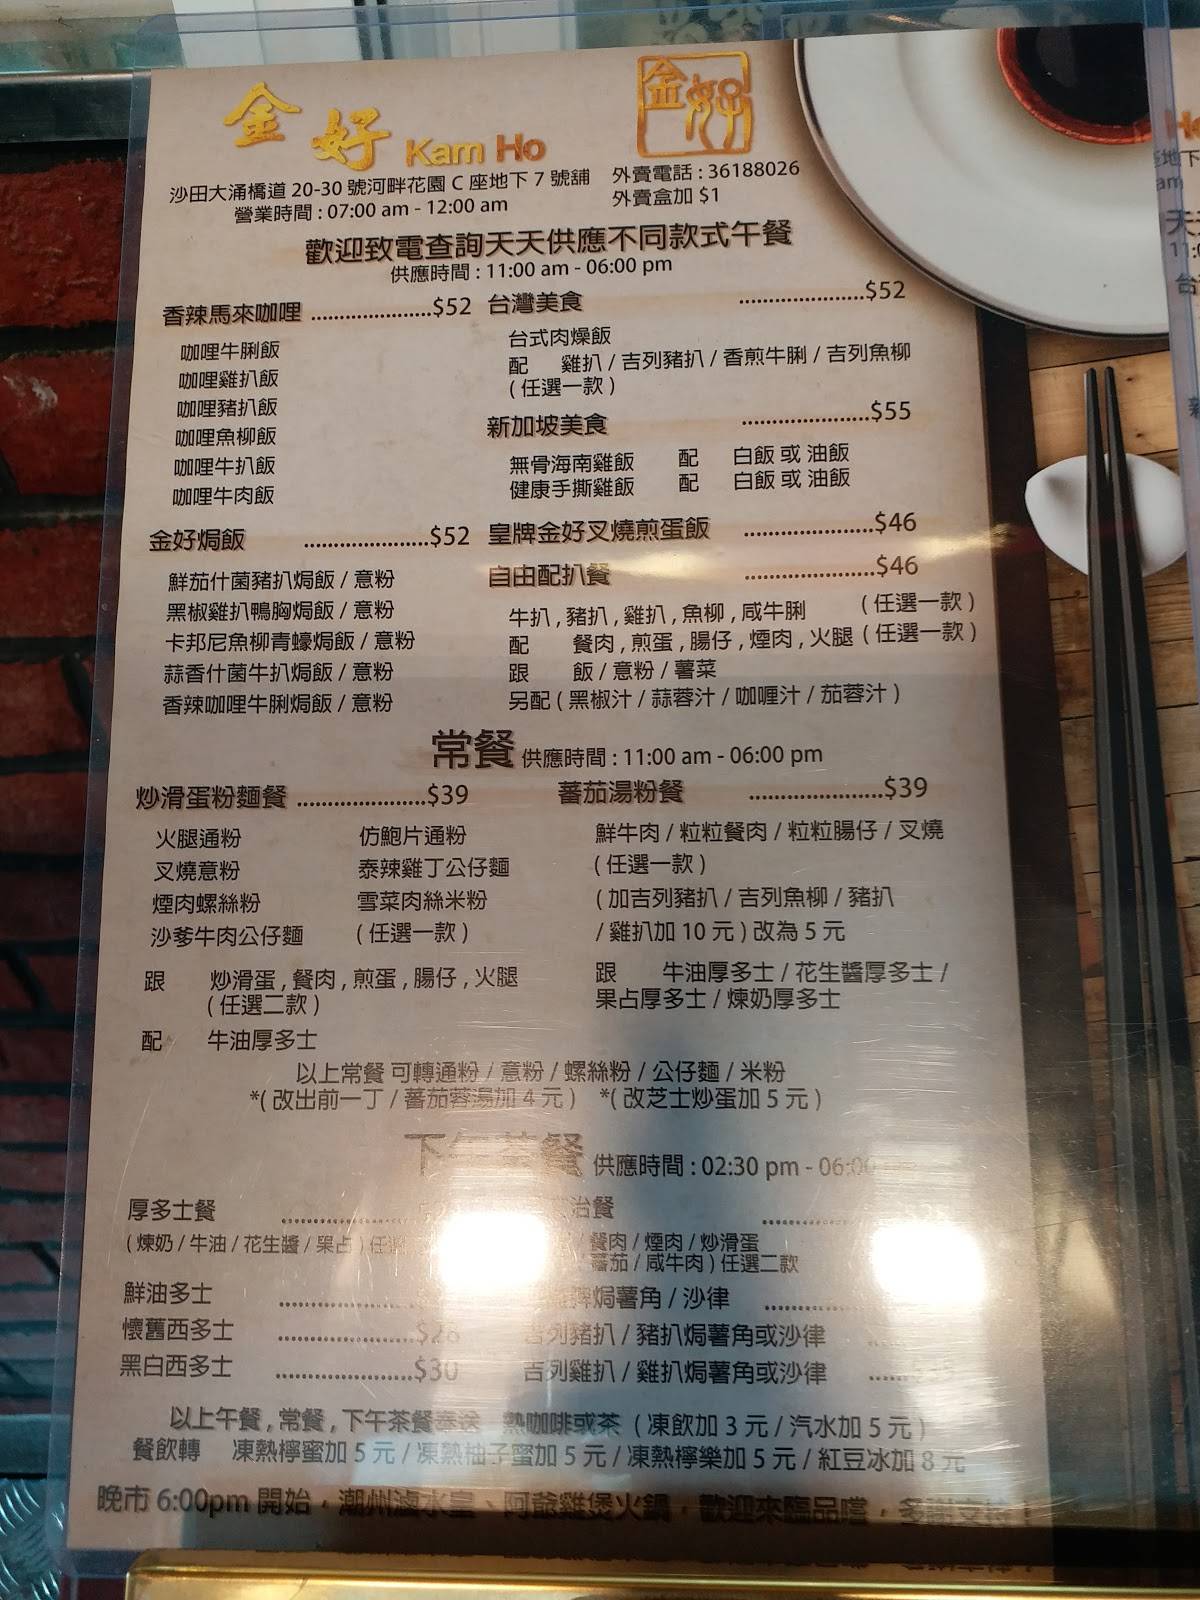 金好 Kam Ho
金好
沙田大涌橋道 20-30 號河畔花園 C 座地下 7 號舖
外賣電話 : 36188026
營業時間 : 07:00 am - 12:00 am
外賣盒加 $1
歡迎致電查詢天天供應不同款式午餐
供應時間 : 11:00 am - 06:00 pm
香辣馬來咖哩 ......................$52
咖哩牛脷飯
咖哩雞扒飯
咖哩豬扒飯
咖哩魚柳飯
咖哩牛扒飯
咖哩牛肉飯
金好焗飯 ......................$52
鮮茄什菌豬扒焗飯 / 意粉
黑椒雞扒鴨胸焗飯 / 意粉
卡邦尼魚柳青蠔焗飯 / 意粉
蒜香什菌牛扒焗飯 / 意粉
香辣咖哩牛脷焗飯 / 意粉
台灣美食 ......................$52
台式肉燥飯
配 雞扒 / 吉列豬扒 / 香煎牛脷 / 吉列魚柳
( 任選一款 )
新加坡美食 ......................$55
無骨海南雞飯 配 白飯 或 油飯
健康手撕雞飯 配 白飯 或 油飯
皇牌金好叉燒煎蛋飯 ......................$46
自由配扒餐 ......................$46
牛扒 , 豬扒 , 雞扒 , 魚柳 , 咸牛脷 ( 任選一款 )
配 餐肉 , 煎蛋 , 腸仔 , 煙肉 , 火腿 ( 任選一款 )
跟 飯 / 意粉 / 薯菜
另配 ( 黑椒汁 / 蒜蓉汁 / 咖喱汁 / 茄蓉汁 )
常餐 供應時間 : 11:00 am - 06:00 pm
炒滑蛋粉麵餐 ......................$39
火腿通粉 仿鮑片通粉
叉燒意粉 泰辣雞丁公仔麵
煙肉螺絲粉 雪菜肉絲米粉
沙爹牛肉公仔麵 ( 任選一款 )
跟 炒滑蛋 , 餐肉 , 煎蛋 , 腸仔 , 火腿
( 任選二款 )
配 牛油厚多士
蕃茄湯粉餐 ......................$39
鮮牛肉 / 粒粒餐肉 / 粒粒腸仔 / 叉燒
( 任選一款 )
( 加吉列豬扒 / 吉列魚柳 / 豬扒
/ 雞扒加 10 元 ) 改為 5 元
跟 牛油厚多士 / 花生醬厚多士 /
果占厚多士 / 煉奶厚多士
以上常餐 可轉通粉 / 意粉 / 螺絲粉 / 公仔麵 / 米粉
*( 改出前一丁 / 蕃茄蓉湯加 4 元 ) *( 改芝士炒蛋加 5 元 )
下午茶餐 供應時間 : 02:30 pm - 06:00
厚多士餐 ......................
( 煉奶 / 牛油 / 花生醬 / 果占 ) 任選
鮮油多士 ......................
懷舊西多士 ......................$28
黑白西多士 ......................$30
治餐 ......................
/ 餐肉 / 煙肉 / 炒滑蛋
蕃茄 / 咸牛肉 ) 任選二款
焗薯角 / 沙律 ......................
吉列豬扒 / 豬扒焗薯角或沙律 ......
吉列雞扒 / 雞扒焗薯角或沙律 ......
以上午餐 , 常餐 , 下午茶餐奉送 熱咖啡或茶 ( 凍飲加 3 元 / 汽水加 5 元 )
餐飲轉 凍熱檸蜜加 5 元 / 凍熱柚子蜜加 5 元 / 凍熱檸樂加 5 元 / 紅豆冰加 8 元
晚市 6:00pm 開始，潮州滷水皇、阿爺雞煲火鍋，歡迎來臨品嚐，多謝支持！